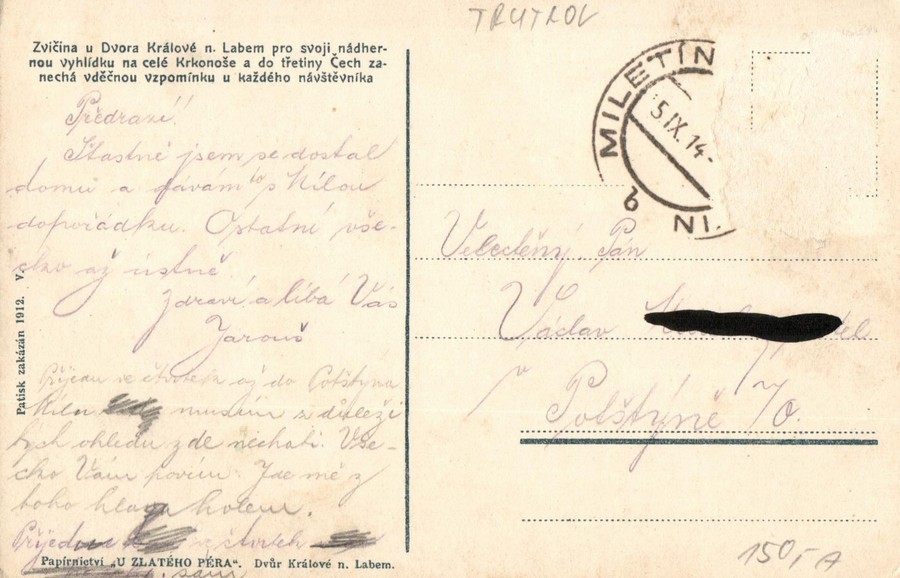 TRUTNOV
Zvičina u Dvora Králové n. Labem pro svoji nádher-
nou vyhlídku na celé Krkonoše a do třetiny Čech za-
nechá vděčnou vzpomínku u každého návštěvníka
MILETÍN
5.IX.14-
b NI.
Předrazí!
Šťastně jsem se dostal
domů a dávám to s Kílou
dopořádku. Ostatní vše-
cko až ústně.
Zdraví a líbá Vás
Jarouš
Přijedu ve čtvrtek až do Potštýna
Kílu musím z důleži
tých ohledů zde nechati. Vše-
cko Vám povím. Jde mě z
toho hlava kolem.
Přijedu ve čtvrtek
sám
Velectěný Pán
Václav
v Potštýně /O.
Patisk zakázán 1912. V
Papírnictví „U ZLATÉHO PÉRA“. Dvůr Králové n. Labem.
150,-